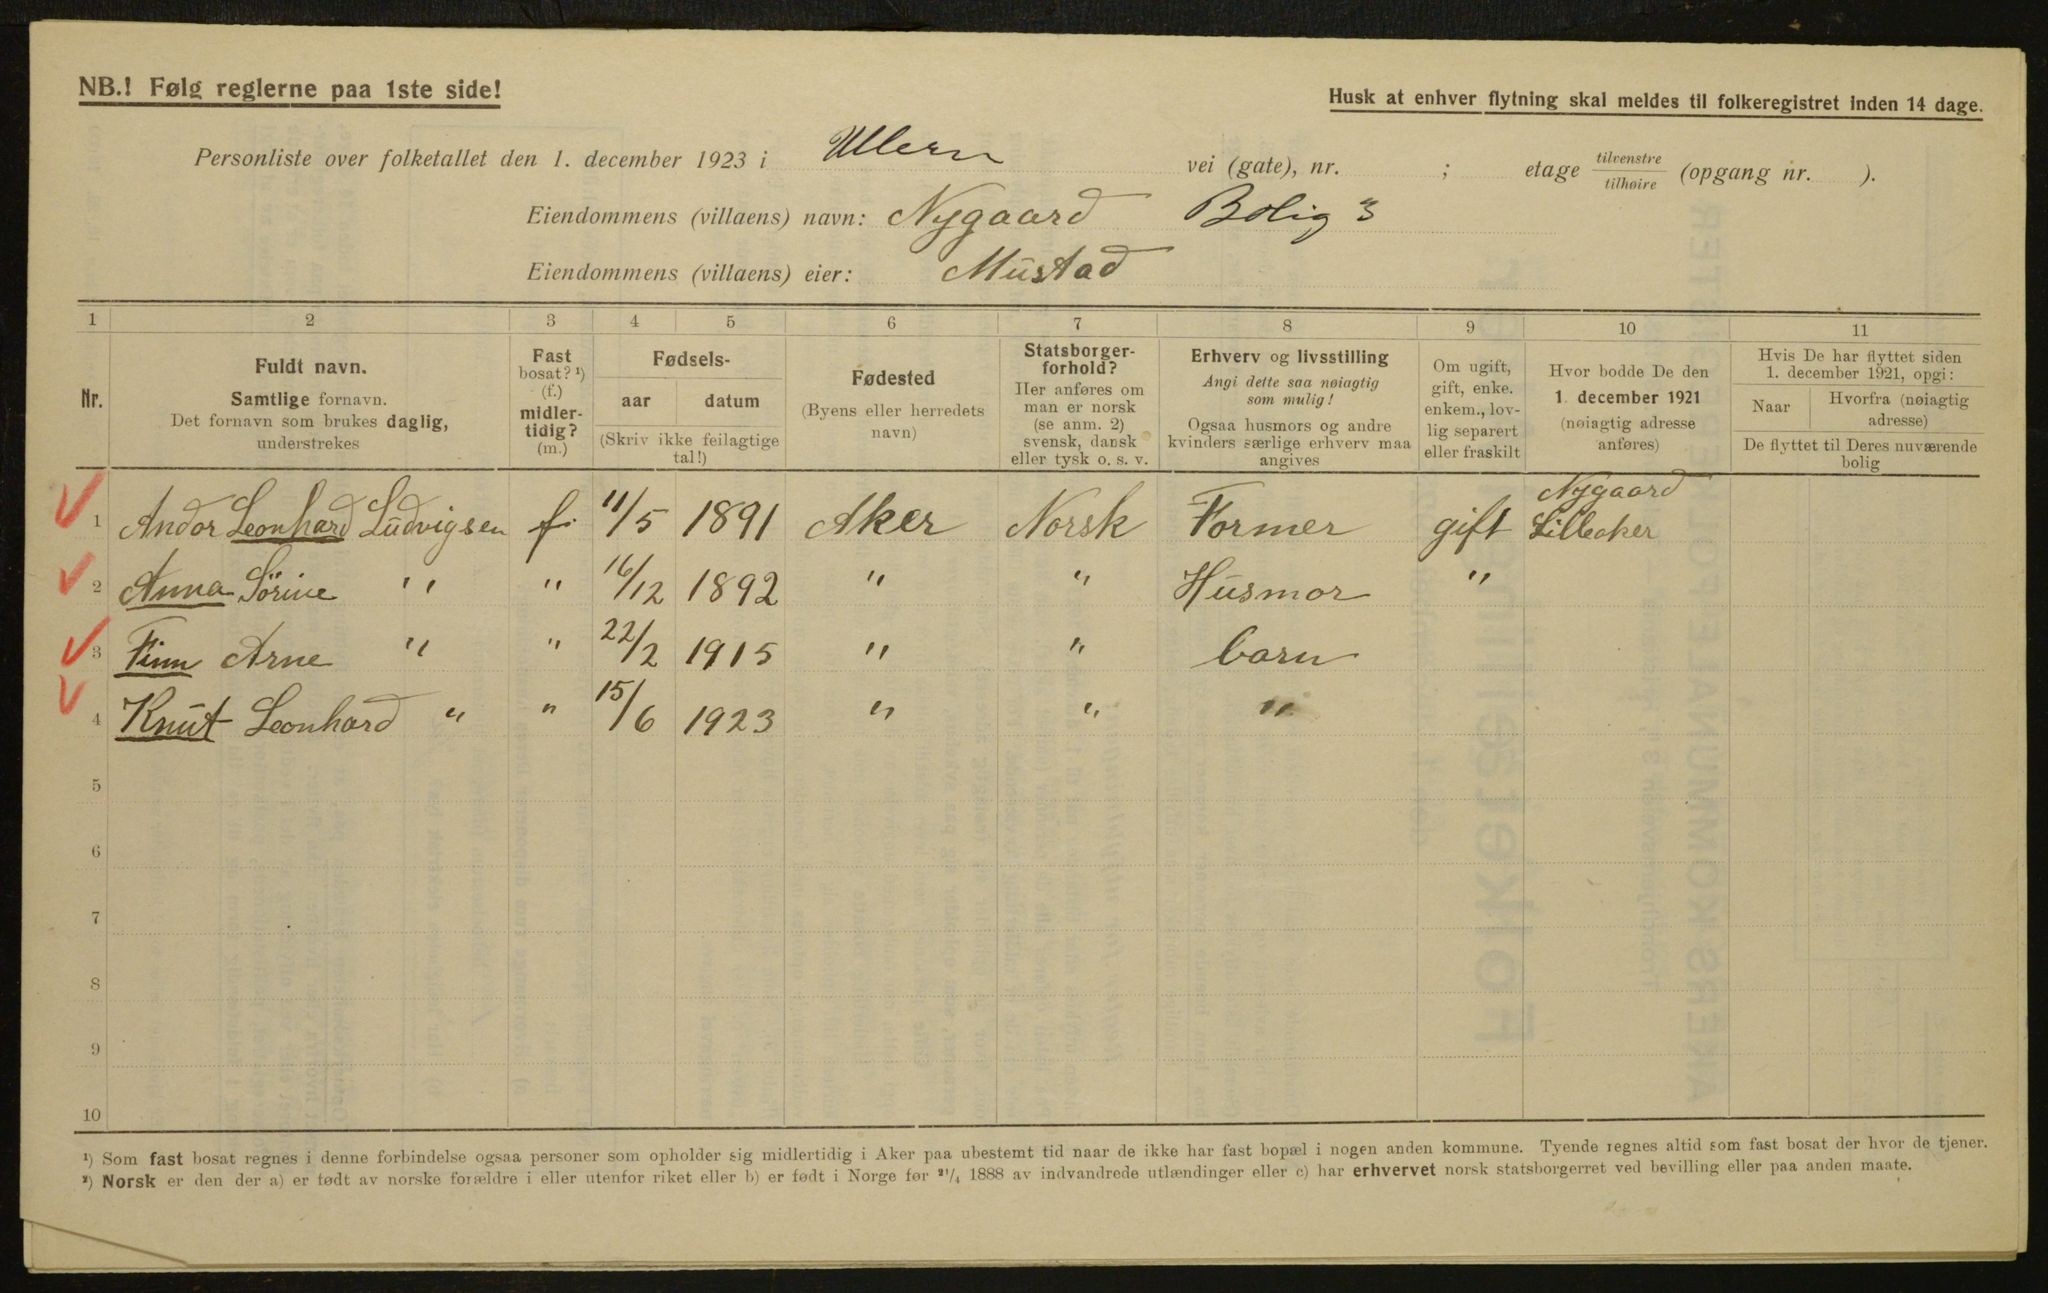 NB.! Følg reglerne paa 1ste side!
Husk at enhver flytning skal meldes til folkeregistret inden 14 dage.
Personliste over folketallet den 1. december 1923 i Ullern vei (gate), nr. ; etage tilvenstre/tilhøire (opgang nr. ).
Eiendommens (villaens) navn: Nygaard Bolig 3
Eiendommens (villaens) eier: Mustad
1 2 3 4 5 6 7 8 9 10 11
Nr.
Fuldt navn.
Samtlige fornavn.
Det fornavn som brukes daglig,
understrekes
Fast
bosat? ¹)
(f.)
midler-
tidig?
(m.)
Fødsels-
aar datum
(Skriv ikke feilagtige
tal!)
Fødested
(Byens eller herredets
navn)
Statsborger-
forhold?
Her anføres om
man er norsk
(se anm. 2)
svensk, dansk
eller tysk o. s. v.
Erhverv og livsstilling
Angi dette saa nøiagtig
som mulig!
Ogsaa husmors og andre
kvinders særlige erhverv maa
angives
Om ugift,
gift, enke.
enkem., lov-
lig separert
eller fraskilt
Hvor bodde De den
1. december 1921
(nøiagtig adresse
anføres)
Hvis De har flyttet siden
1. december 1921, opgi:
Naar Hvorfra (nøiagtig
adresse)
De flyttet til Deres nuværende
bolig
Nygaard
1 Andor Leonhard Ludvigsen f. 11/5 1891 Aker Norsk Former gift Lilleaker
2 Anna Sörine " " 16/12 1892 " " Husmor "
3 Finn Arne " " 22/2 1915 " " barn
4 Knut Leonhard " " 15/6 1923 " " "
5
6
7
8
9
10
¹) Som fast bosat regnes i denne forbindelse ogsaa personer som opholder sig midlertidig i Aker paa ubestemt tid naar de ikke har fast bopæl i nogen anden kommune. Tyende regnes altid som fast bosat der hvor de tjener.
²) Norsk er den der a) er født av norske forældre i eller utenfor riket eller b) er født i Norge før ²¹/₄ 1888 av indvandrede utlændinger eller c) har erhvervet norsk statsborgerret ved bevilling eller paa anden maate.